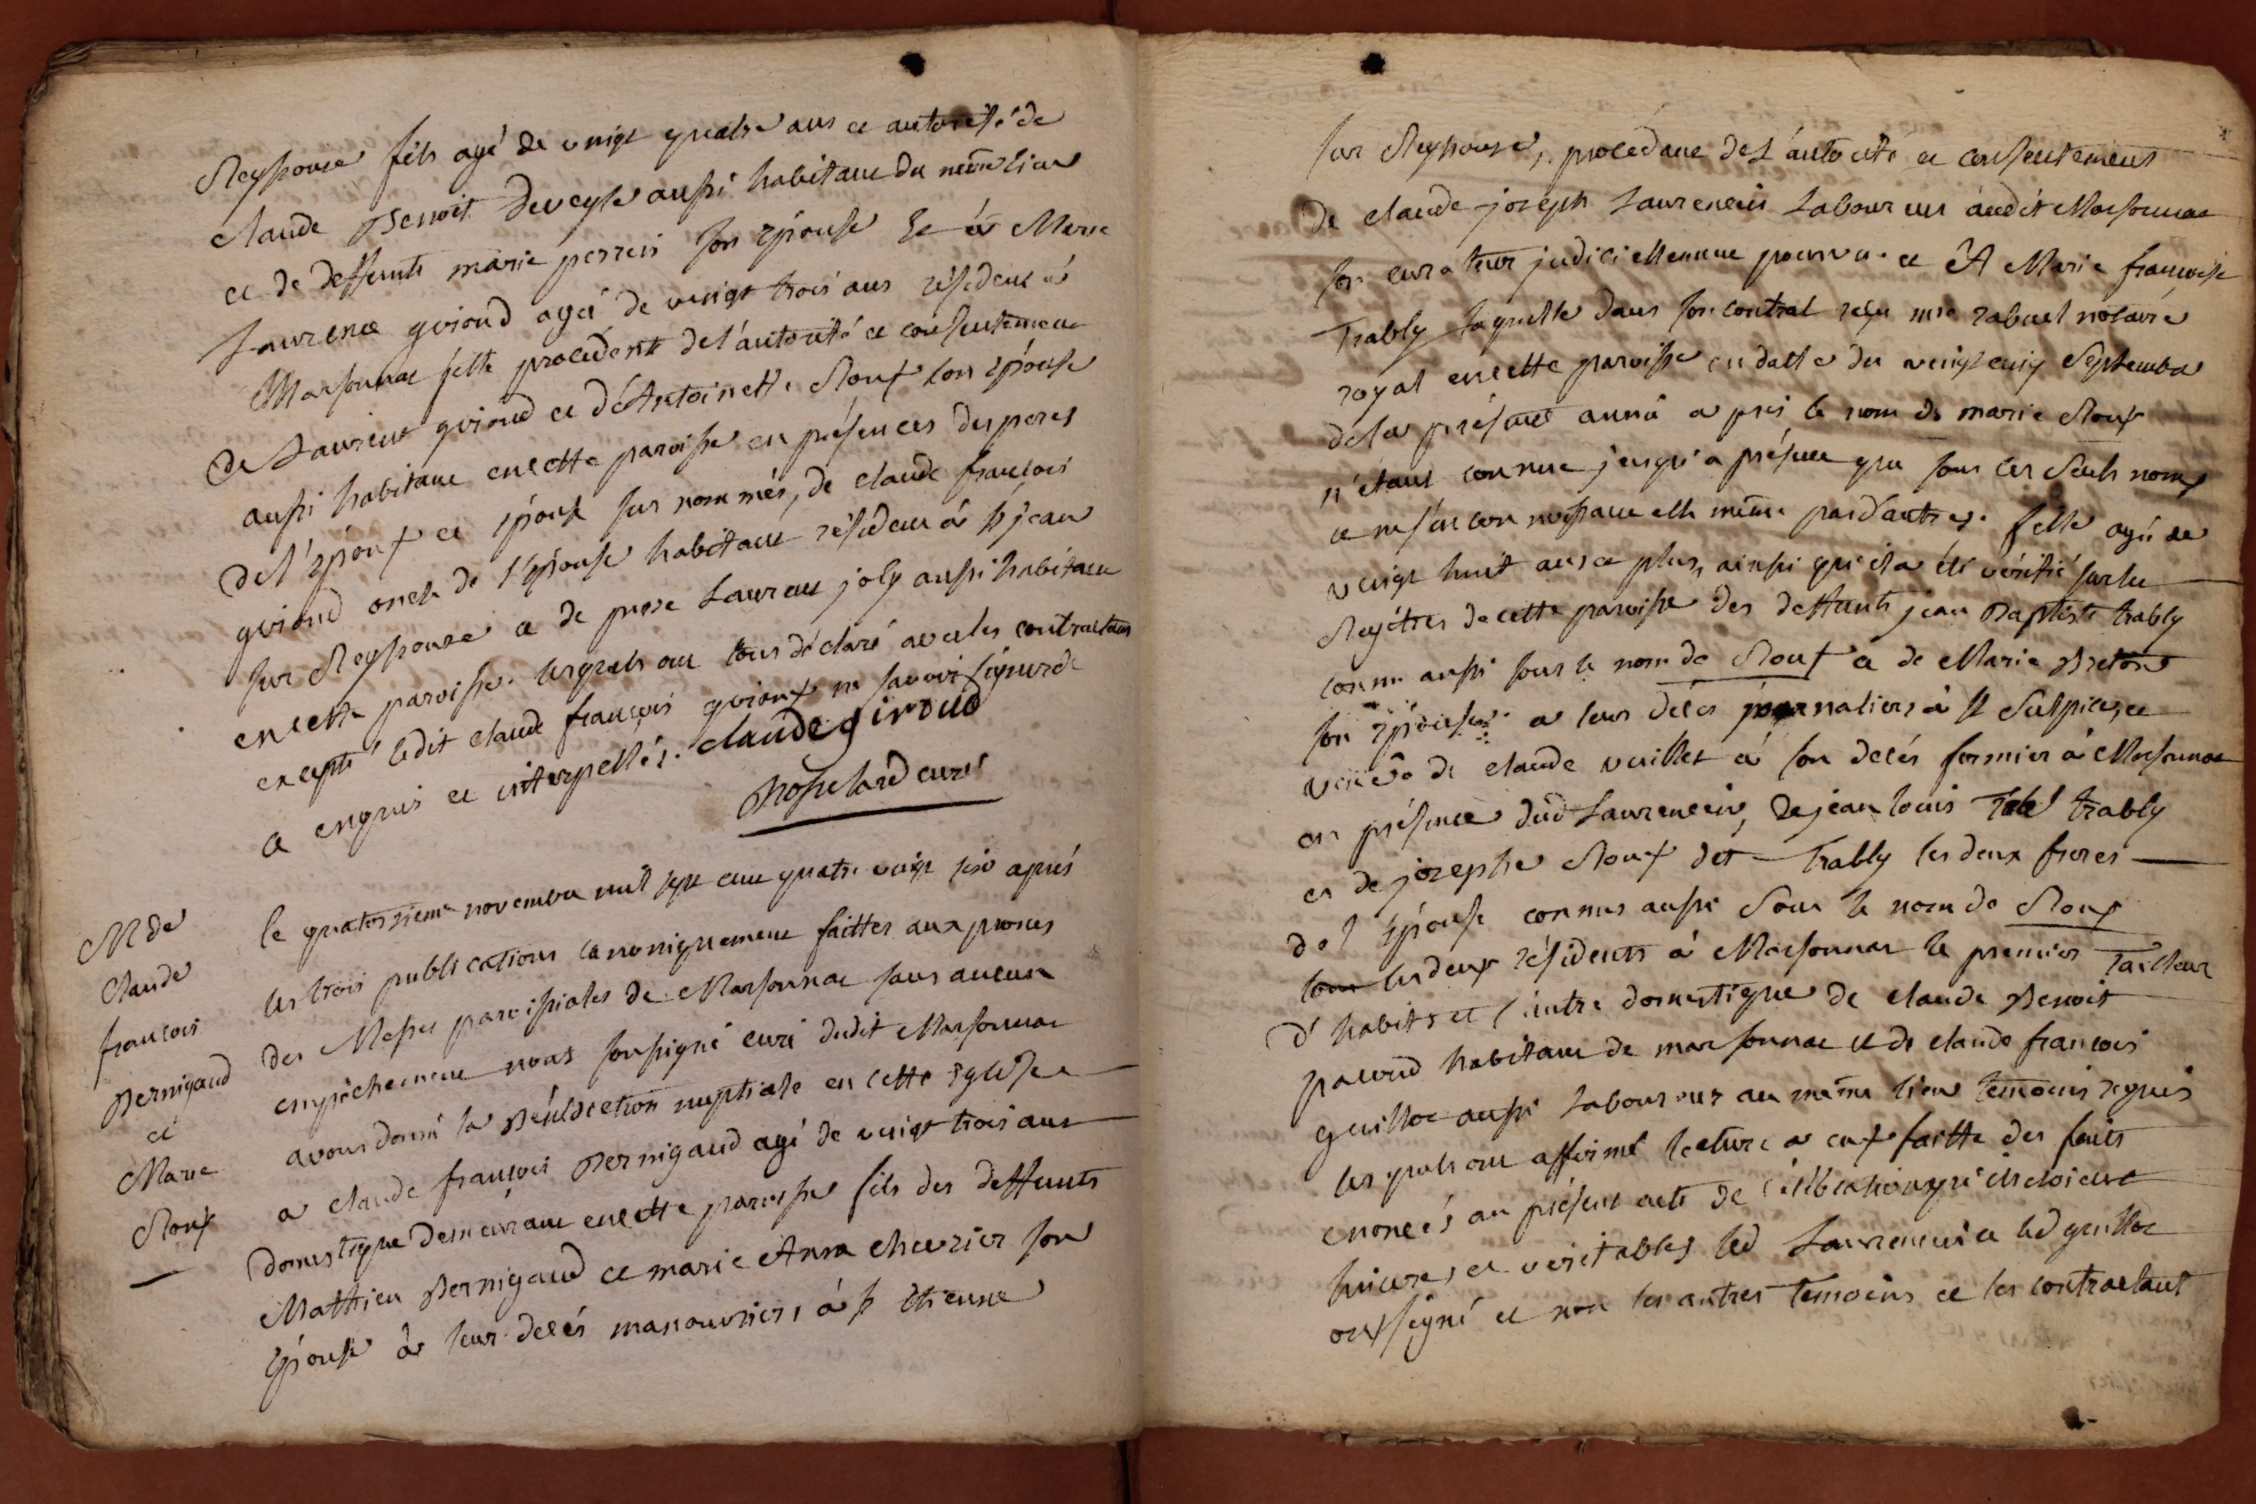 Reyssouse fils agé de vingt quatre ans et autorisé de
claude Benoit Deveyle aussi habitant du même lieu
et de deffunte marie perrein son Epouse Et à Marie
Laurence guioud agée de vingt trois ans résidente à
Marsonnac fille procédente de l'autorité et consentement
De Laurent guioud et d'Antoinette Roux son épouse
aussi habitant en cette paroisse en présences des peres
de l'époux et épouse sus nommés, de claude francois
guioud oncle de l'épouse habitant résident à st jean
sur Reyssouse et de pierre Laurent joly aussi habitant
en cette paroisse. lesquels ont tous déclaré avec les contractans
excepté ledit claude françois guioux ne savoir signer de
ce enquis et interpellés. claude giroud
curé
M de
Claude
francois
Bernigaud
et
Marie
Roux
le quatorzieme novembre mil sept cent quatre vingt six après
les trois publications canoniquement faittes aux prones
des Messes paroissiales de Marsonnac sans aucun
empêchement nous soussigné curé dudit Marsonnac
avons donné la Bénédiction nuptiale en cette Eglise
a claude françois Bernigaud agé de vingt trois ans
Domestique demeurant en cette paroisse fils des deffunts
Mathieu Bernigaud et marie Anne chevrier son
épouse à leur décés manouvriers à st Etienne
sur Reyssouse, procédant de l'autorité et consentement
De claude joseph Laurencin Laboureur audit Marsonnac
son curateur judiciellement pourvu. et A Marie françoise
Trably laquelle dans son contrat reçu me rabuel notaire
royal en cette paroisse en datte du vingt cinq Septembre
de la présente année a pris le nom de marie Roux
n'étant connue jusqu'a présent que sous les seuls noms
et ne s'en connoissant elle même pas d'autres. fille agée de
vingt huit ans et plus, ainsi qu'il a été vérifié sur les
Regitres de cette paroisse des deffunts jean Baptiste trably
connu aussi sous le nom de Roux et de Marie Breton
son épouse. a leur décés journaliers à st Sulpice, et
veuve de claude veuillet à son décés fermier à Marsonnac
en présence dud Laurencin, de jean louis Trably
et de josephe Roux dit Trably les deux freres
de l'épouse connus aussi sous le nom de Roux
tous les deux résidents à Marsonnac le premier Tailleur
d'habits et l'autre domestique de claude Benoit
pacoud habitant de marsonnac et de claude francois
guilloc aussi Laboureur au même lieu temoins requis
lesquels ont affirmé lecture a eux faitte des faits
enoncés au présent acte de célébration qu'ils étoient
sinceres et veritables led Laurencin et led guilloc
ont signé et non les autres temoins et les contractant